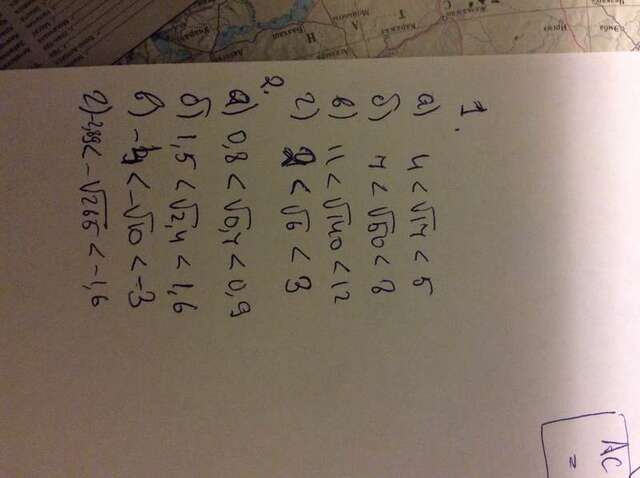 1.
а) 4 < √17 < 5
б) 7 < √50 < 8
в) 11 < √140 < 12
г) 2 < √6 < 3
2.
а) 0,8 < √0,7 < 0,9
б) 1,5 < √2,4 < 1,6
в) -4 < -√10 < -3
г) < -√265 < -1,6
AC
=